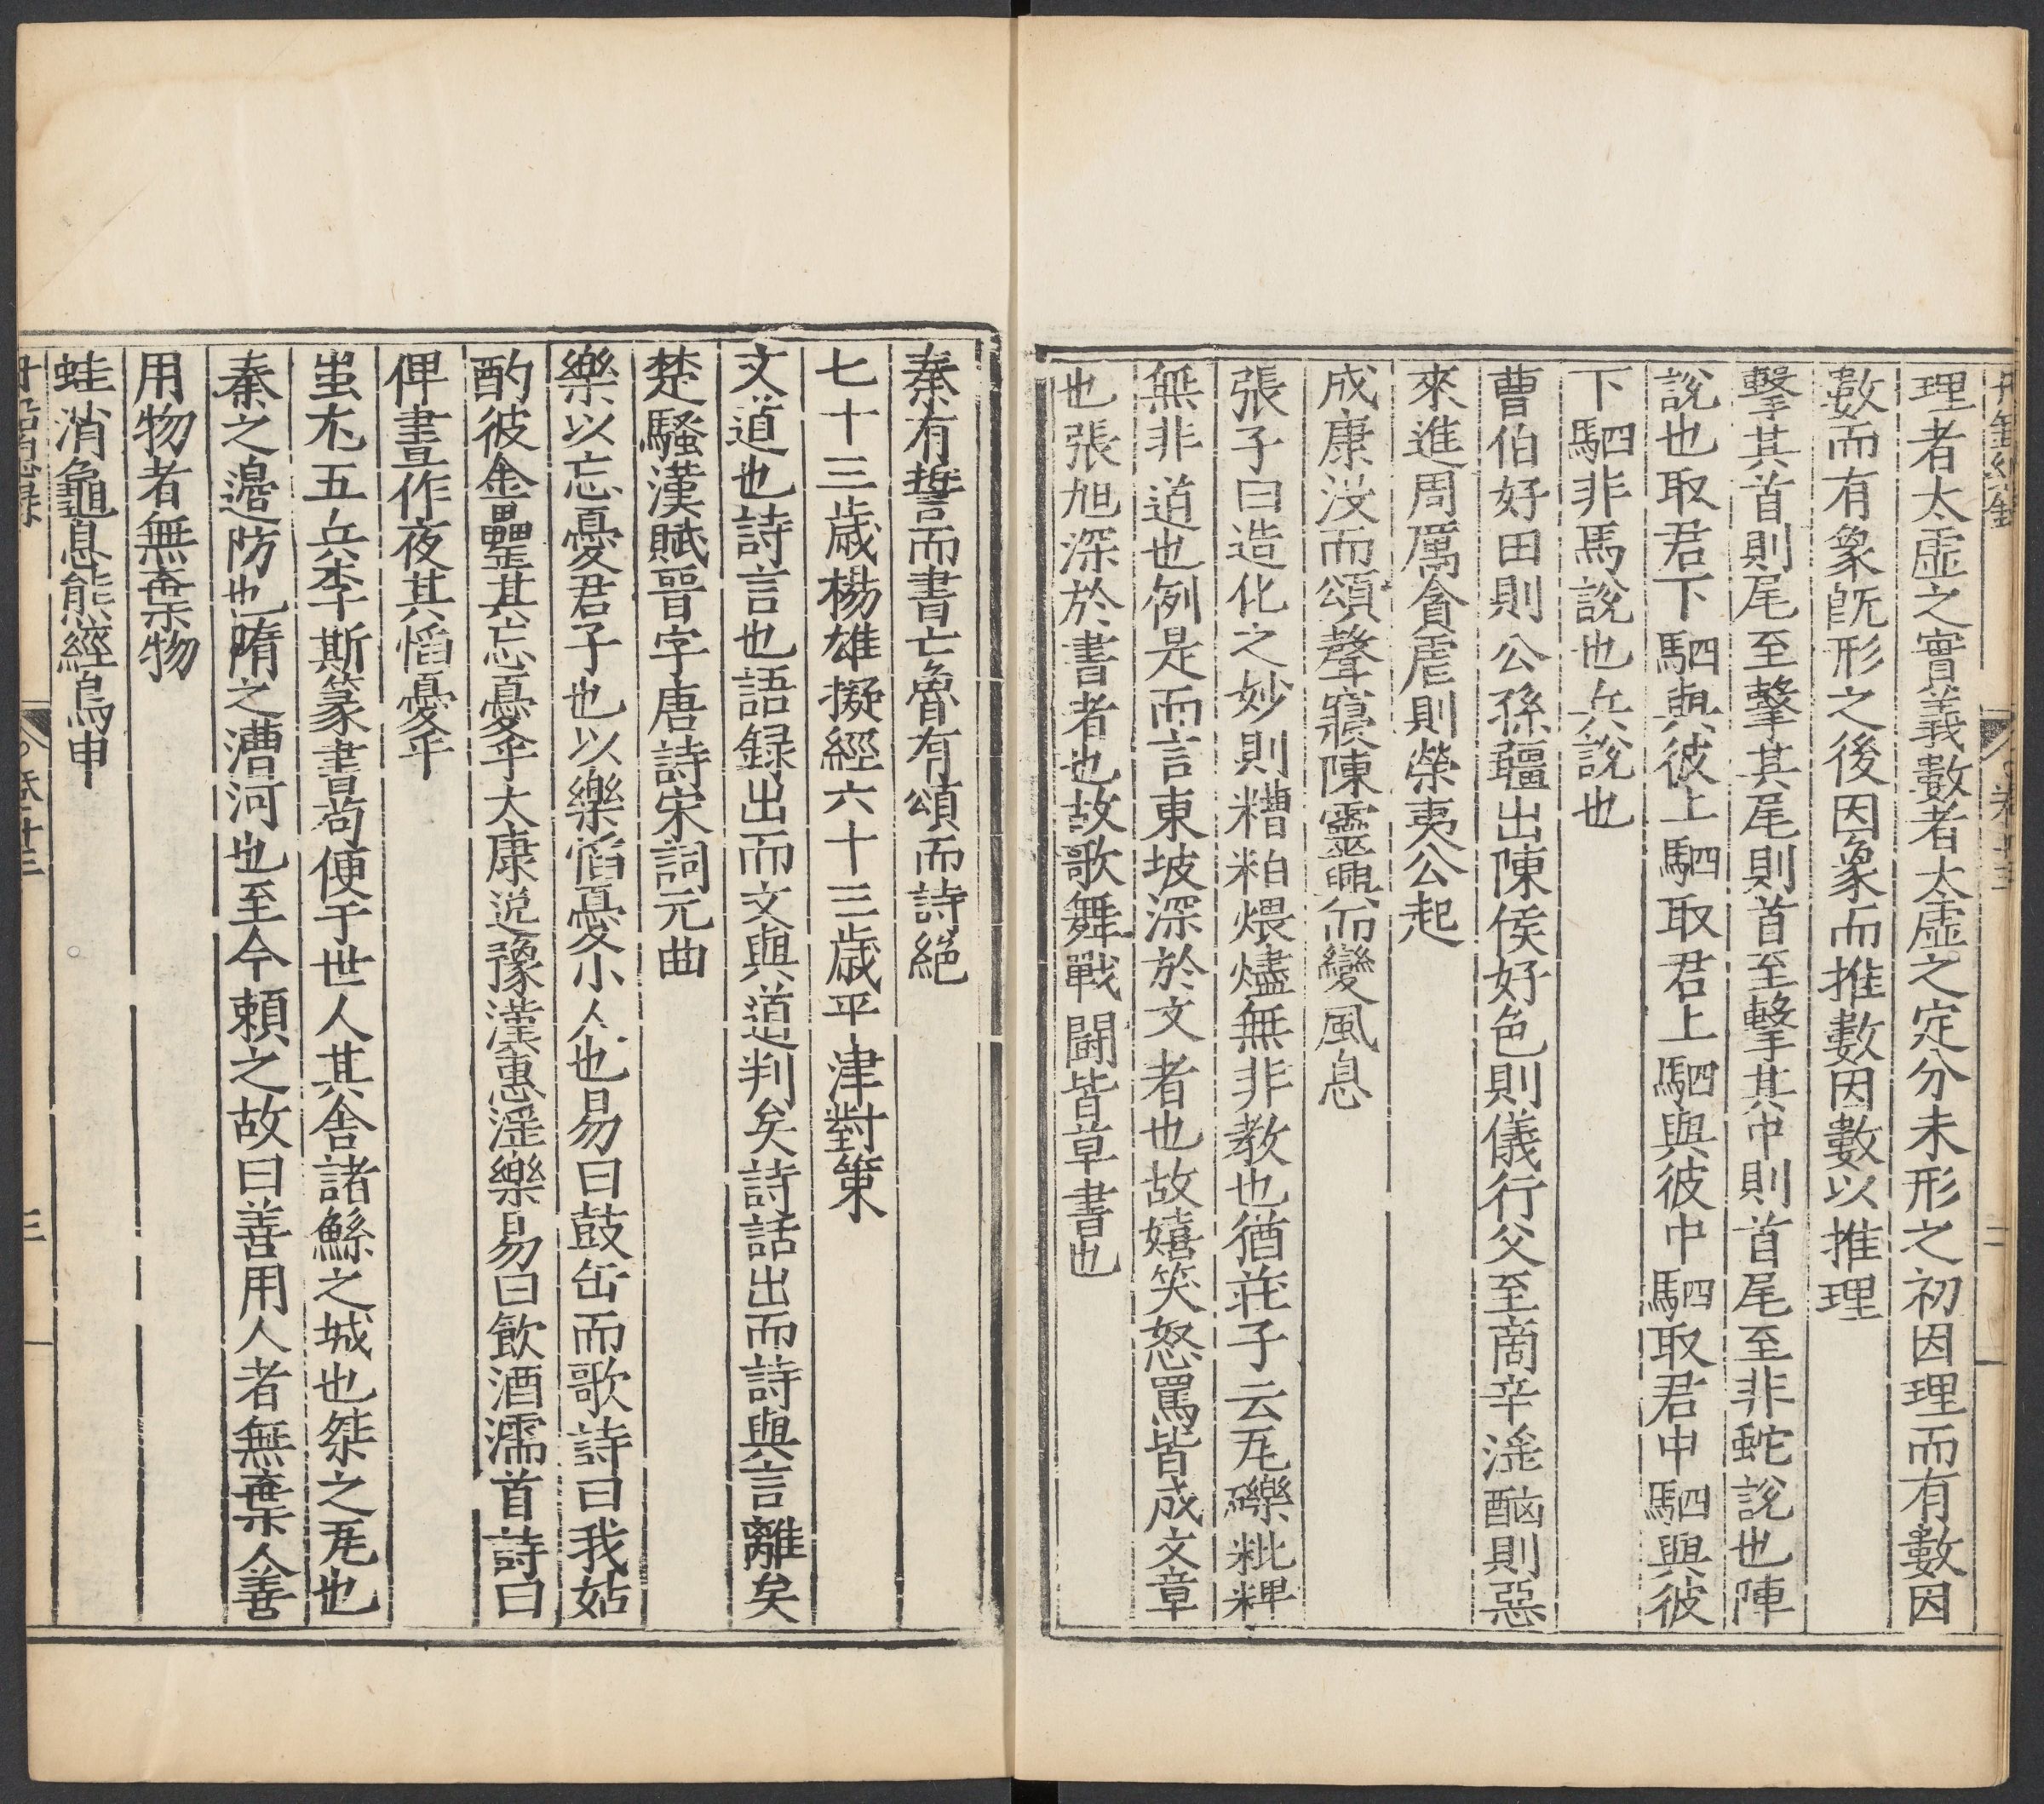 理者太虛之實義數者太虛之定分未形之初因理而有數因
數而有象旣形之後因象而推數因數以推理
擊其首則尾至擊其尾則首至擊其中則首尾至非蛇說也陣
說也取君下駟與彼上駟取君上駟與彼中駟取君中駟與彼
下駟非馬說也兵說也
曹伯好田則公孫疆出陳侯好色則儀行父至商辛淫酗則惡
來進周厲貪虐則榮夷公起
成康没而頌聲寢陳靈興而變風息
張子曰造化之妙則糟粕煨燼無非教也猶莊子云瓦礫粃稗
無非道也例是而言東坡深於文者也故嬉笑怒罵皆成文章
也張旭深於書者也故歌舞戰鬪皆草書也
秦有誓而書亡魯有頌而詩絕
七十三歲楊雄擬經六十三歲平津對策
文道也詩言也語録出而文與道判矣詩話出而詩與言離矣
楚騷漢賦晉字唐詩宋詞元曲
樂以忘憂君子也以樂慆憂小人也易曰鼓缶而歌詩曰我姑
酌彼金罍其忘憂乎大康逸豫漢惠淫樂易曰飲酒濡首詩曰
俾晝作夜其慆憂乎
蚩尤五兵李斯篆書苟便于世人其舍諸鯀之城也桀之瓦也
秦之邊防也隋之漕河也至今頼之故曰善用人者無棄人善
用物者無棄物
蛙消龜息熊經鳥申
三